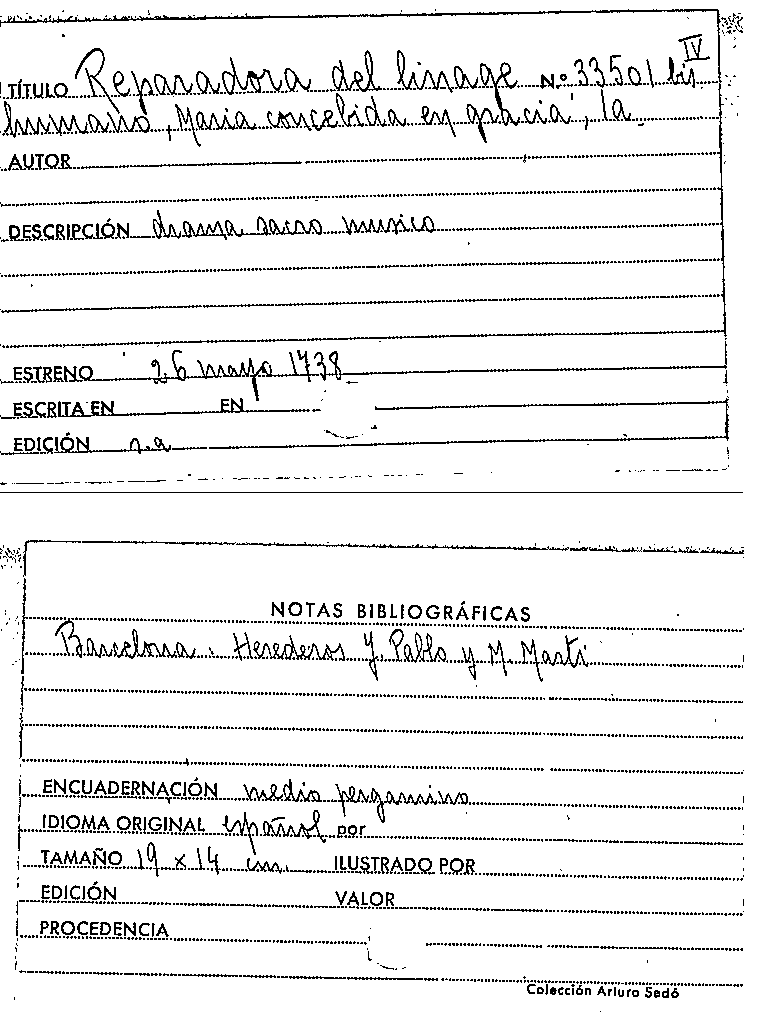 IV
TÍTULO Reparadora del linage N.º 33501 bis
humano, Maria concebida en gracia, la
AUTOR
DESCRIPCIÓN drama sacro musico
ESTRENO 26 mayo 1738
ESCRITA EN EN
EDICIÓN s.a
NOTAS BIBLIOGRÁFICAS
Barcelona. Herederos J. Pablo y M. Marti
ENCUADERNACIÓN medio pergamino
IDIOMA ORIGINAL español por
TAMAÑO 19 x 14 cm. ILUSTRADO POR
EDICIÓN VALOR
PROCEDENCIA
Colección Arturo Sedó